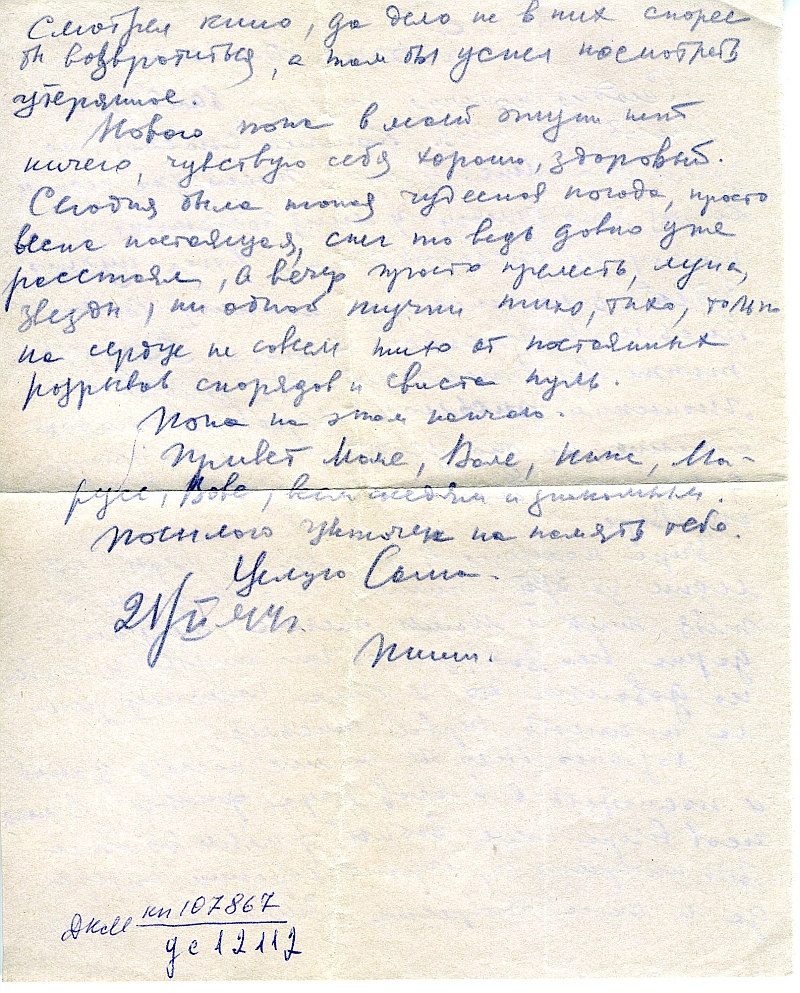 Смотрел кино, да дело не в них скорее
бы возвратиться, а там бы успел посмотреть
утерянное.
Нового пока в моей жизни нет
ничего, чувствую себя хорошо, здоровый.
Сегодня была такая чудесная погода, просто
весна настоящая, снег то ведь давно уже
расстаял, а вечер просто прелесть, луна,
звезды, ни одной тучки тихо, тихо, только
на сердце не совсем тихо от постоянных
розрывов снорядов и свиста пуль.
Пока на этом кончаю.
Привет Моле, Вале, Нине, Ма-
русе, Вове, всем и знакомым.
Посылаю цветочек на память тебе.
Целую Саша.
21/II 44г.
Пиши.
ДКМ кп107867
дс12112